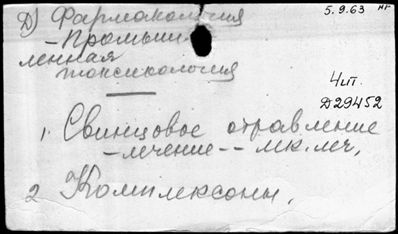 Д) Фармакология
5.9.63 НГ
- Промыш
ленная
токсикология
4ит.
Д29452
1. Свинцовое отравление
- лечение -- мк.леч,
2 Комплексоны.